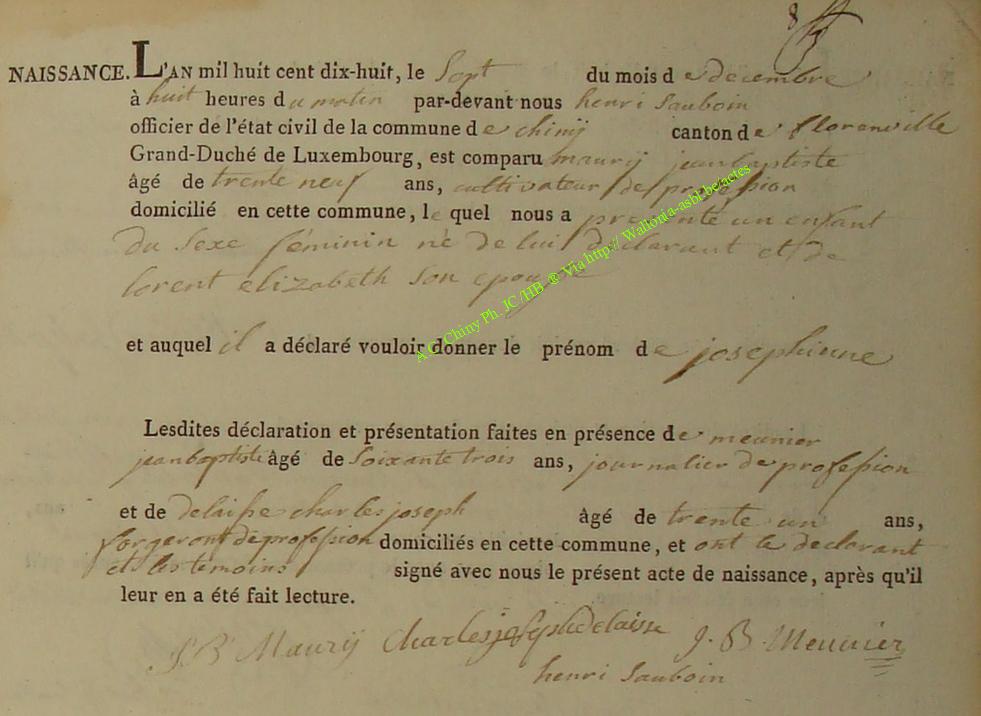 8
NAISSANCE. L'AN mil huit cent dix-huit, le Sept du mois d e decembre
à huit heures d u matin par-devant nous henri Sauboin
officier de l'état civil de la commune d e chinij canton d e florenville
Grand-Duché de Luxembourg, est comparu maurij jeanbaptiste
âgé de trente neuf ans, cultivateur de profession
domicilié en cette commune, l e quel nous a presenté un enfant
du Sexe féminin né de lui déclarant et de
lorent elizabeth Son epouse
et auquel il a déclaré vouloir donner le prénom d e josephinne
Lesdites déclaration et présentation faites en présence d e meunier
jeanbaptiste âgé de Soixante trois ans, journalier de profession
et de delaisse charles joseph âgé de trente un ans,
forgeront de profession domiciliés en cette commune, et ont le declarant
et les temoins signé avec nous le présent acte de naissance, après qu'il
leur en a été fait lecture.
J B Maurij Charles joseph delaisse J. B. Meunier
henri Sauboin
A.C. Chiny Ph. JC /HB ® Via http:// Wallonia-asbl.be/actes